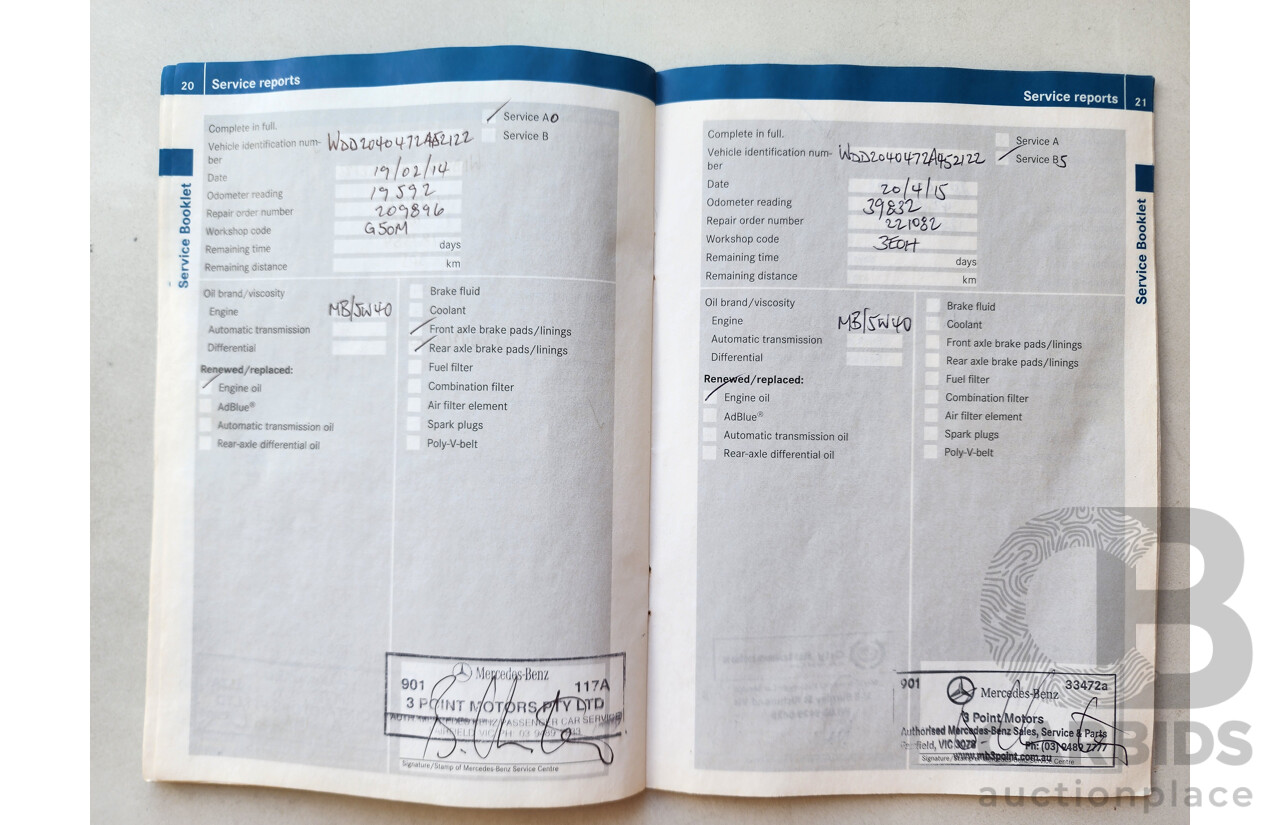 20 Service reports
Complete in full.
Service A0
Service B
Vehicle identification num-
ber
WDD2040472A452122
Date 19/02/14
Odometer reading 19592
Repair order number 209896
Workshop code G50M
Remaining time days
Remaining distance km
Oil brand/viscosity
Engine MB/5W40
Automatic transmission
Differential
Renewed/replaced:
Engine oil
AdBlue®
Automatic transmission oil
Rear-axle differential oil
Brake fluid
Coolant
Front axle brake pads/linings
Rear axle brake pads/linings
Fuel filter
Combination filter
Air filter element
Spark plugs
Poly-V-belt
Mercedes-Benz
901 117A
3 POINT MOTORS PTY LTD
PASSENGER CAR SERVICE
Signature/Stamp of Mercedes-Benz Service Centre
Service Booklet
Service reports 21
Complete in full.
Service A
Service B5
Vehicle identification num-
ber
WDD2040472A452122
Date 20/4/15
Odometer reading 39832
Repair order number 221082
Workshop code 3EOH
Remaining time days
Remaining distance km
Oil brand/viscosity
Engine MB/5W40
Automatic transmission
Differential
Renewed/replaced:
Engine oil
AdBlue®
Automatic transmission oil
Rear-axle differential oil
Brake fluid
Coolant
Front axle brake pads/linings
Rear axle brake pads/linings
Fuel filter
Combination filter
Air filter element
Spark plugs
Poly-V-belt
901 Mercedes-Benz 33472a
3 Point Motors
Authorised Mercedes-Benz Sales, Service & Parts
VIC 3078 Ph: (03)
www.mb3point.com.au
Centre
Service Booklet
ALLBIDS
auctionplace